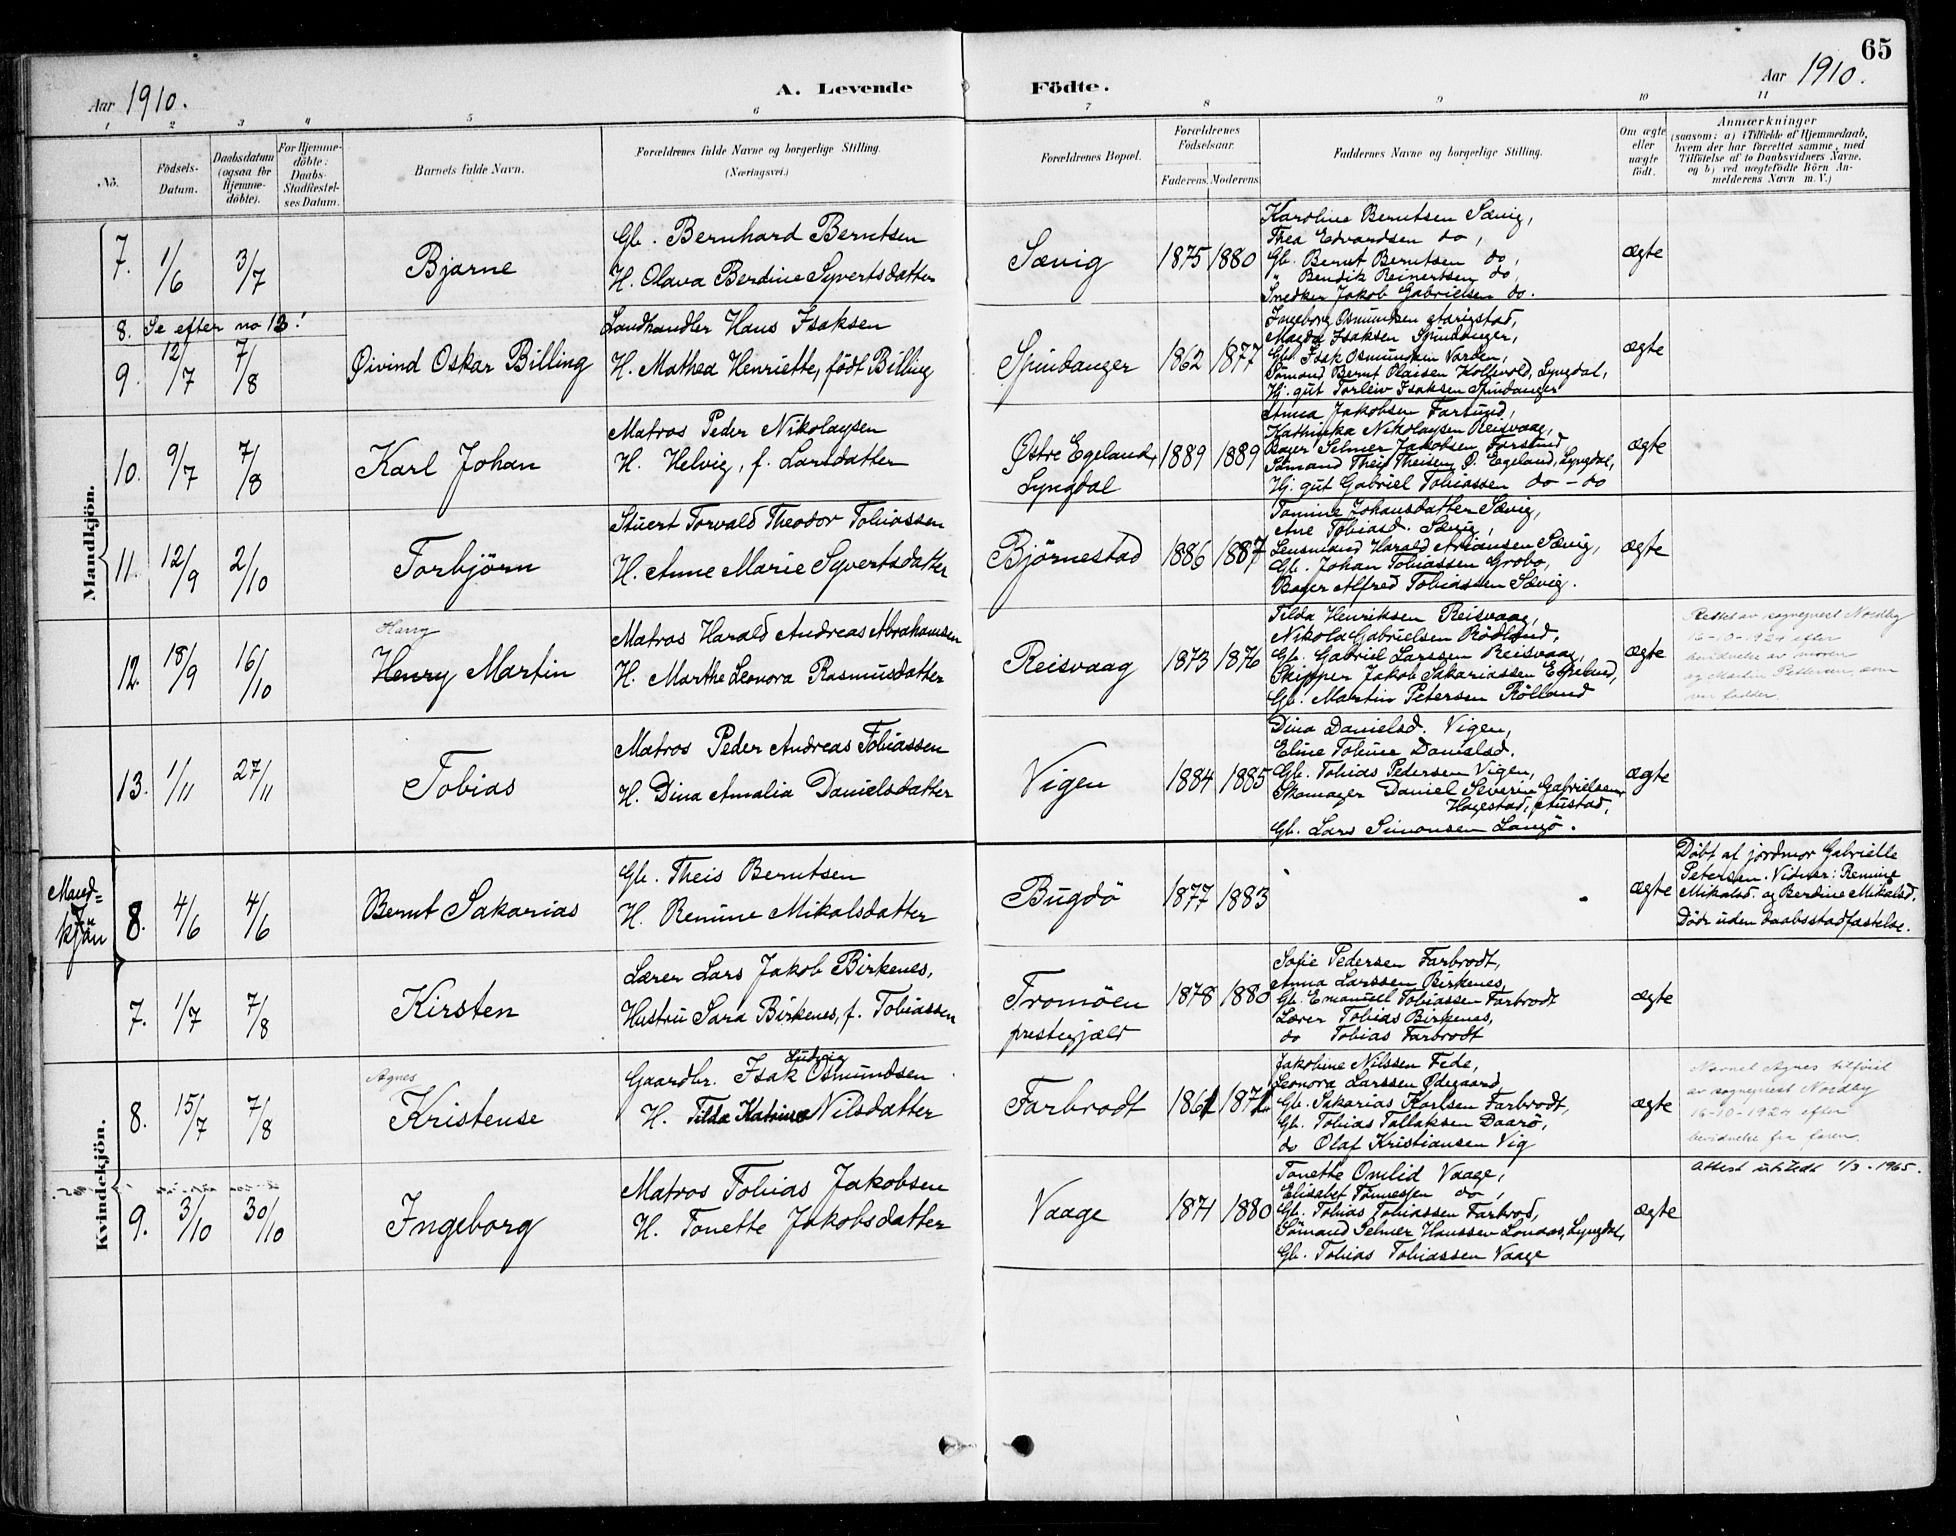 65
Aar 1910.
A. Levende
Födte.
Aar 1910.
1 2 3 4 5 6 7 8 9 10 11
No.
Födsels-
Datum.
Daabsdatum
(ogsaa for
Hjemme-
döbte).
For Hjemme-
döbte:
Daabs-
Stadfæstel-
ses Datum.
Barnets fulde Navn.
Forældrenes fulde Navne og borgerlige Stilling.
(Næringsvei.)
Forældrenes Bopæl.
Forældrenes
Födselsaar.
Faderens. Moderens.
Faddernes Navne og borgerlige Stilling.
Om ægte
eller
uægte
födt.
Anmærkninger
(saasom: a) i Tilfælde af Hjemmedaab,
hvem der har forrettet samme, med
Tilföielse af to Daabsvidners Navne,
og b) ved uægtefödte Börn An-
melderens Navn m. V.)
Mandkjön.
7. 1/6 3/7 Bjarne
Gb. Bernhard Berntsen
H. Olava Berdine Syvertsdatter
Sævig 1875 1880
Karoline Berntsen Sævig,
Thea Edvardsen do,
Gb. Bernt Berntsen do,
" Bendik Reinertsen do,
Snedker Jakob Gabrielsen do.
ægte
8. Se efter no 13!
9. 12/7 7/8 Øivind Oskar Billing
Landhandler Hans Isaksen
H. Mathea Henriette, födt Billing
Spindanger 1862 1877
Ingeborg Osmundsen
Magda Isaksen Spindanger,
Gb. Isak Osmundsen Varden,
Sömand Bernt Olaisen Lyngdal,
Hj. gut Torleiv Isaksen Spindanger
ægte
10. 9/7 7/8 Karl Johan
Matros Peder Nikolaysen
H. Helvig, f. Larsdatter
Østre Egeland,
Lyngdal
1889 1889
Anna Jakobsen Farsund,
Kathinka Nikolaysen Reisvaag,
Bager Selmer Jakobsen Farsund
Sömand Theis Theisen Ø. Egeland, Lyngdal,
Hj. gut Gabriel Tobiassen do - do
ægte
11. 12/9 2/10 Torbjörn
Stuert Torvald Theodor Tobiassen
H. Anne Marie Syvertsdatter
Björnestad 1886 1887
Tomine Johansdatter Sævig,
Ane Tobiasd. Sævig,
Lensmand Harald Ariansen Sævig,
Gb. Johan Tobiassen Grobo,
Bager Alfred Tobiassen Sævig.
ægte
12. 18/9 16/10
Harry
Henry Martin
Matros Harald Andreas Abrahamsen
H. Marthe Leonora Rasmusdatter
Reisvaag 1873 1876
Tilda Henriksen Reisvaag,
Nikola Gabrielsen Rödland,
Gb. Gabriel Larssen Reisvaag,
Skipper Jakob Sakariassen Egeland,
Gb. Martin Petersen Rölland
ægte
Rettet av sogneprest Nordby
16-10-1924 efter
bevidnelse av moren
og Martin Pettersen som
var fadder
13. 1/11 27/11 Tobias
Matros Peder Andreas Tobiassen
H. Dina Amalia Danielsdatter
Vigen 1884 1885
Dina Danielsd. Vigen,
Eline Tobine Danielsd.
Gb. Tobias Pedersen Vigen,
Skomager Daniel Severin Gabrielsen
Hagestad, Austad,
Gb. Lars Simonsen Langö.
ægte
Mand-
kjön
8. 4/6 4/6 Bernt Sakarias
Gb. Theis Berntsen
H. Renine Mikalsdatter
Bugdö 1877 1883
ægte
Döbt af jordmor Gabrielle
Petersen. Vidner: Renine
Mikalsd. og Berdine Mikalsd.
Död uden daabsstadfæstelse.
Kvindekjön.
7. 1/7 7/8 Kirsten
Lærer Lars Jakob Birkenes,
Hustru Sara Birkenes, f. Tobiassen
Tromöen
prestegjæld
1878 1880
Sofie Pedersen Farbrodt,
Anna Larssen Birkenes,
Gb. Emanuel Tobiassen Farbrodt
Lærer Tobias Birkenes,
do Tobias Farbrodt
ægte
8. 15/7 7/8
Agnes
Kristense
Ludvig
Gaardbr. Isak Osmundsen
H. Tilda Katrine Nilsdatter
Farbrodt 1861 1871
Jakobine Nilssen Fede,
Leonora Larssen Ødegaard,
Gb. Sakarias Karlsen Farbrodt,
Gb. Tobias Tollaksen Daarö,
do Olaf Kristiansen Vig
ægte
Navnet Agnes tilföiet
av sogneprest Nordby
16-10-1924 efter
bevidnelse fra faren.
9. 3/10 30/10 Ingeborg
Matros Tobias Jakobsen
H. Tonette Jakobsdatter
Vaage 1871 1880
Tonette Omlid Vaage,
Elisabet Tönnessen do,
Gb. Tobias Tobiassen Farbrod,
Sömand Selmer Hanssen Lonaas, Lyngdal,
Gb. Tobias Tobiassen Vaage
ægte
Attest utstedt 1/3 - 1965.